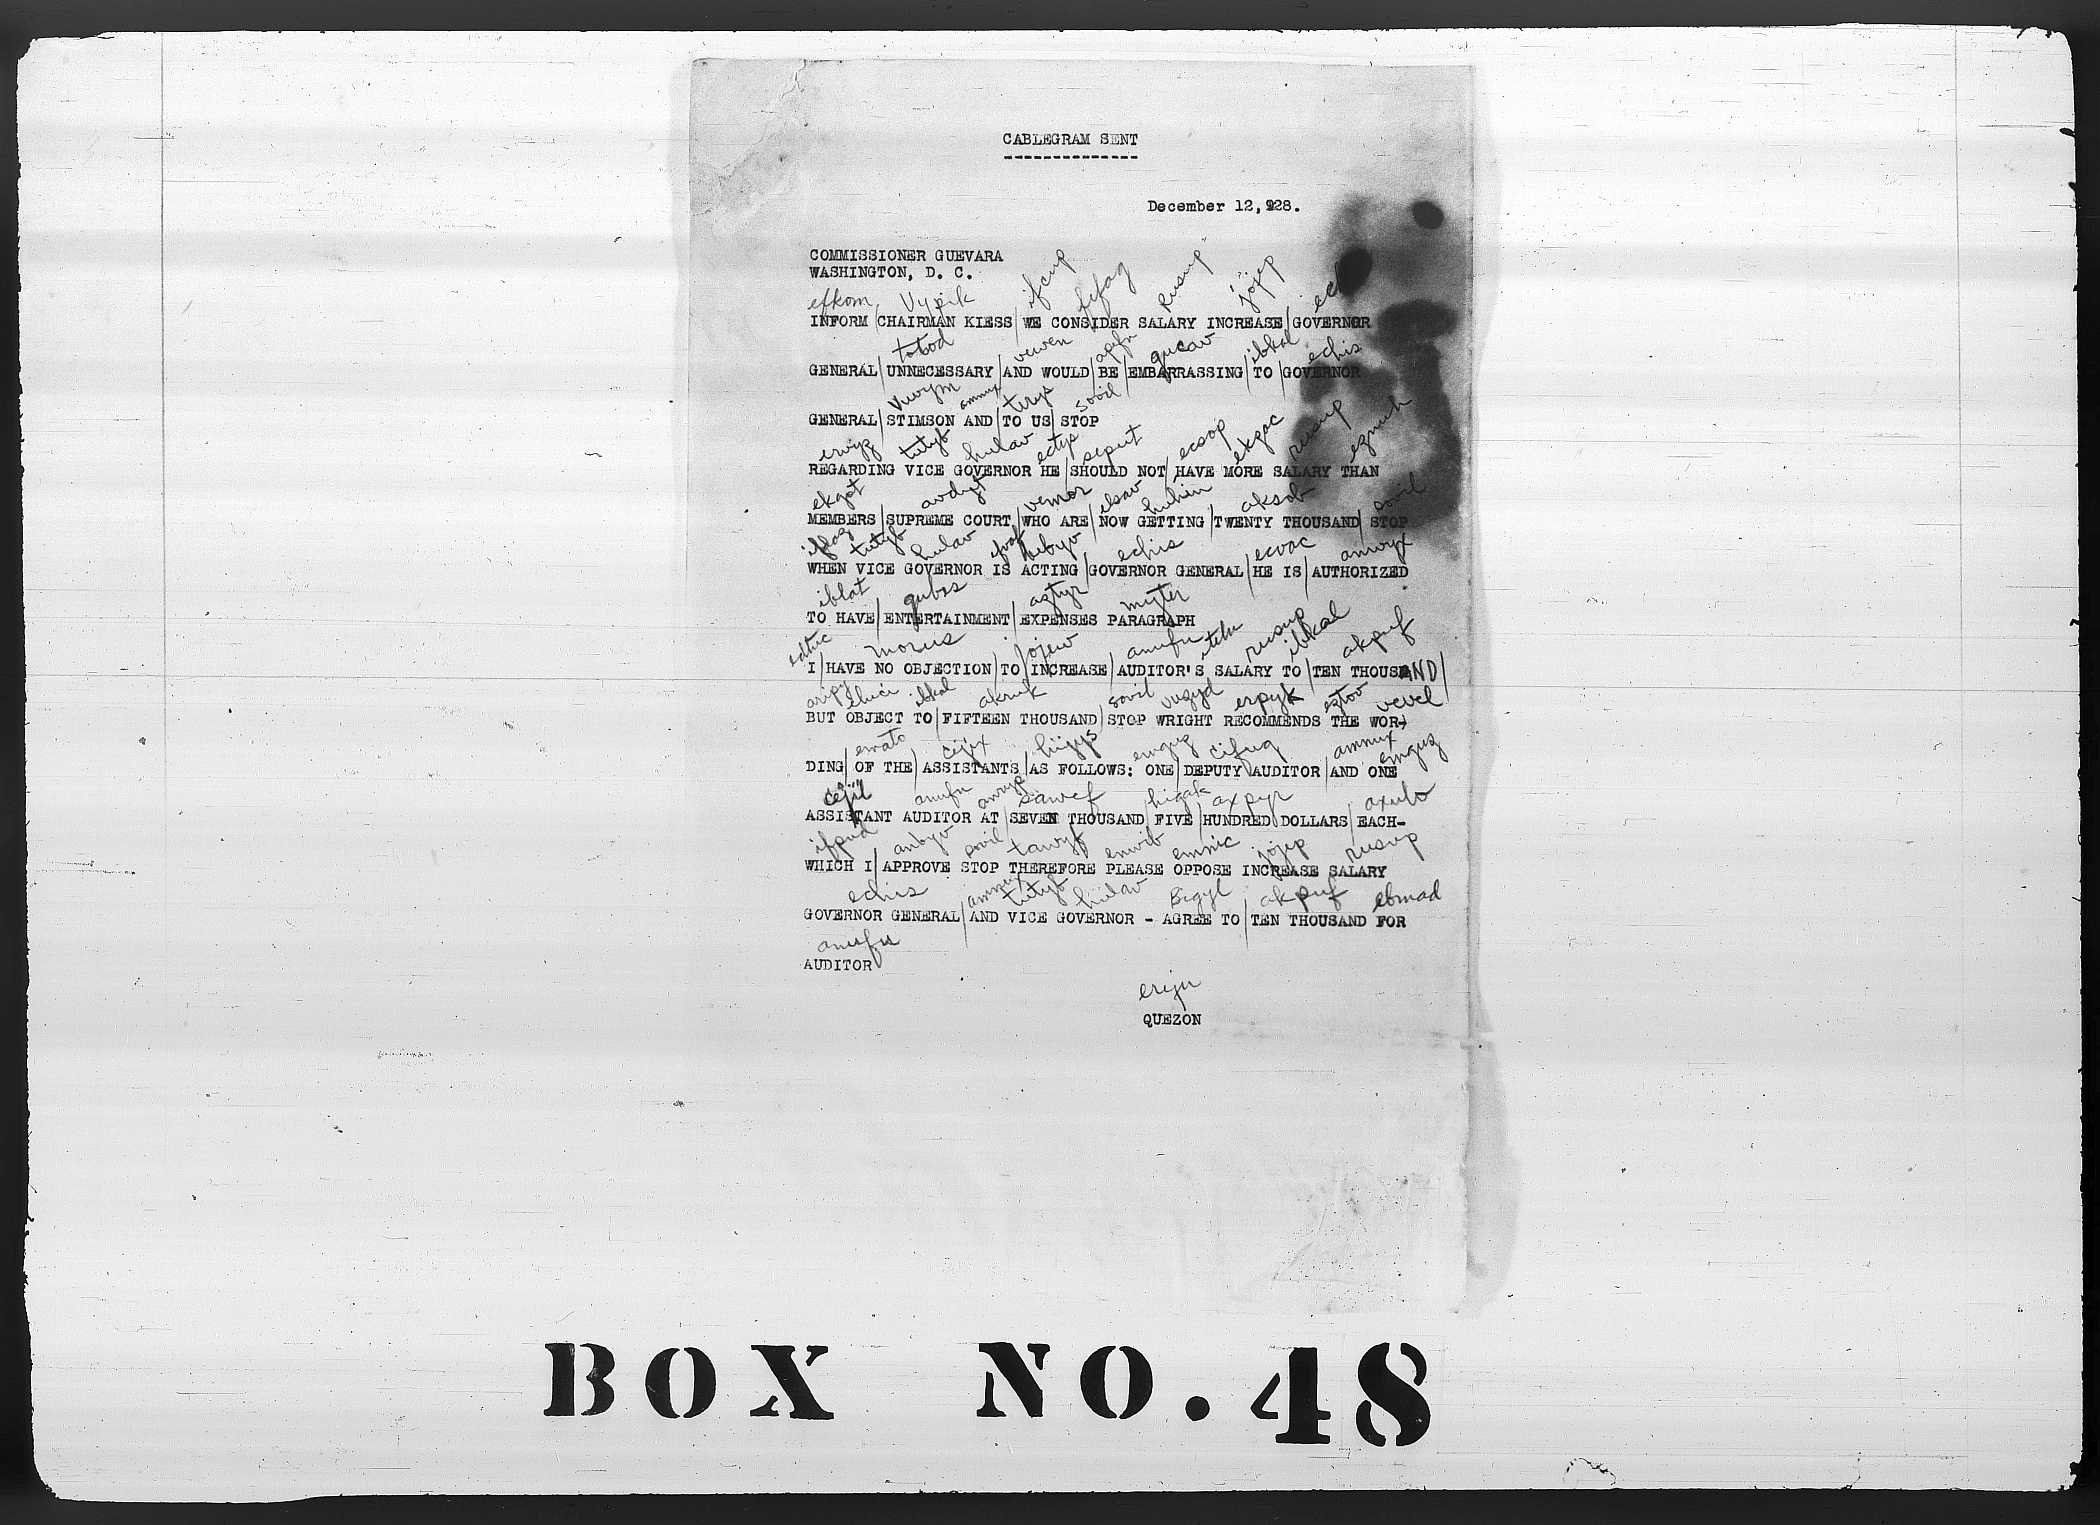 CABLEGRAM SENT
December 12, 928.
COMMISSIONER GUEVARA
WASHINGTON, D. C.
efkom Vypik ifcup fifog rusup jojep
INFORM/CHAIRMAN KIESS/WE CONSIDER SALARY INCREASE/GOVERNOR
totod vewen ibkal echis
GENERAL/UNNECESSARY/AND WOULD/BE/EMBARRASSING/TO/GOVERNOR
ammux sovil
GENERAL/STIMSON AND/TO US/STOP
tutyb hulav seput ecsop ekgac rusup
REGARDING VICE GOVERNOR HE/SHOULD NOT/HAVE MORE SALARY THAN
ekgot vemor elsav huhin aksob sovil
MEMBERS/SUPREME COURT/WHO ARE/NOW GETTING/TWENTY THOUSAND/STOP
tutyb hulav echis ecvac amwyx
WHEN VICE GOVERNOR IS ACTING/GOVERNOR GENERAL/HE IS/AUTHORIZED
iblat qubes aztyr myter
TO HAVE/ENTERTAINMENT/EXPENSES PARAGRAPH
morus jojew anufu rusup ibkal akpuf
I/HAVE NO OBJECTION/TO/INCREASE/AUDITOR'S SALARY TO/TEN THOUSAND/
aripy ibkal akruk sovil vuzyd erpyk eztov vevel
BUT OBJECT TO/FIFTEEN THOUSAND/STOP WRIGHT RECOMMENDS THE WOR-
emato cejix hijys emguz cifug ammux emguz
DING/OF THE/ASSISTANTS/AS FOLLOWS: ONE/DEPUTY AUDITOR/AND ONE
cejil anufu sawef higak axpyr axulv
ASSISTANT AUDITOR AT/SEVEN THOUSAND/FIVE/HUNDRED DOLLARS/EACH-
ifpud anbyv sovil tawyf emwib emnic jojep rusup
WHICH I/APPROVE STOP THEREFORE PLEASE OPPOSE INCREASE SALARY
echis ammux tutyb hulav Bigyl akpuf ebmad
GOVERNOR GENERAL/AND VICE GOVERNOR - AGREE TO/TEN THOUSAND FOR
anufu
AUDITOR
eriju
QUEZON
BOX NO. 48